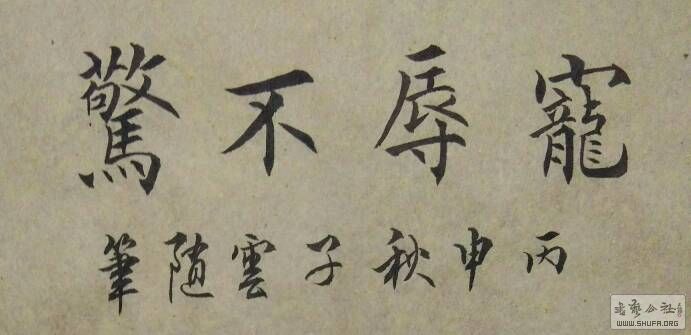 寵辱不驚
丙申秋子雲随筆
WWW.SHUFA.ORG